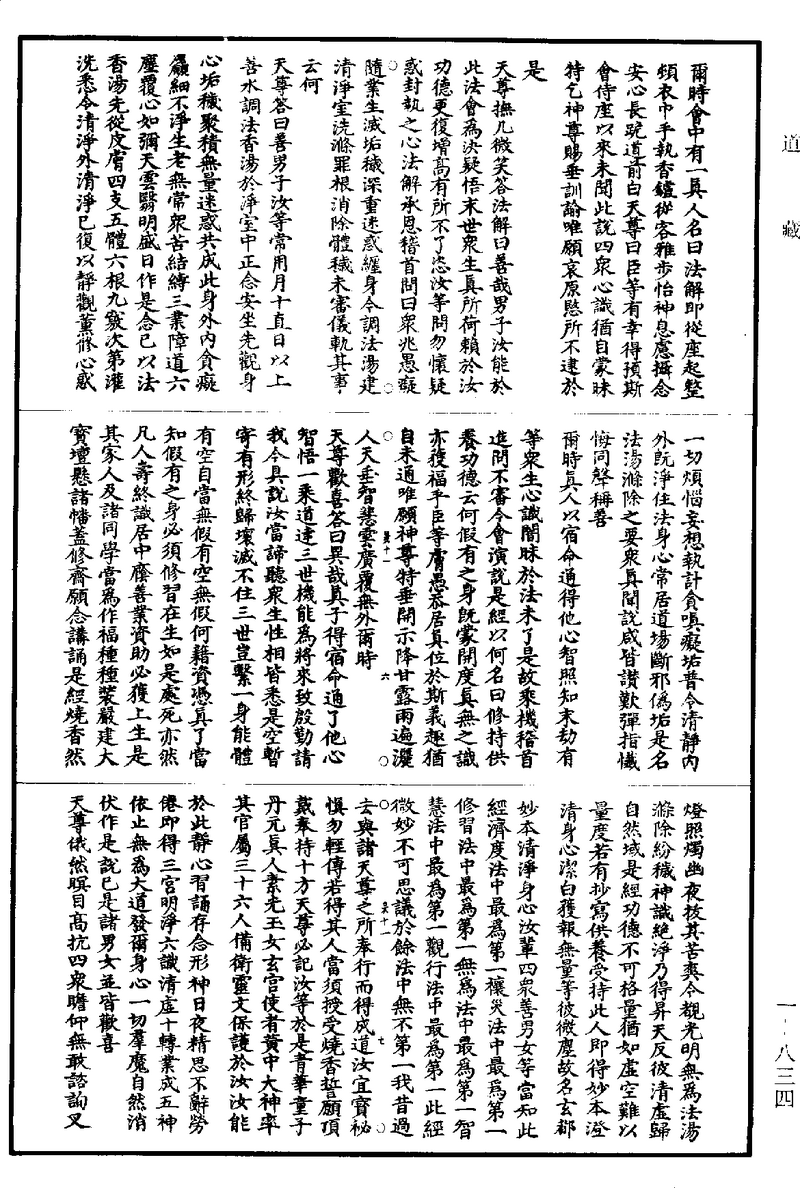 道藏
爾時會中有一眞人名曰法解即從座起整
頓衣巾手執香鑪從容雅步怡神息慮攝念
安心長跪道前白天尊曰臣等有幸得預斯
會侍座以來未聞此說四衆心識猶自蒙昧
特乞神尊賜垂訓諭唯願哀原愍所不逮於
是
天尊撫几微笑答法解曰善哉男子汝能於
此法會爲決疑悟末世衆生眞所荷賴於汝
功德更復增高有所不了恣汝等問勿懷疑
惑封執之心法解承恩稽首問曰衆兆愚癡
隨業生滅垢穢深重迷惑纏身今調法湯建
清淨室洗滌罪根消除體穢未審儀軌其事
云何
天尊答曰善男子汝等當用月十直日以上
善水調法香湯於淨室中正念安坐先觀身
心垢穢聚積無量迷惑共成此身外內貪癡
麤細不淨生老無常衆苦結縛三業障道六
塵覆心如彌天雲翳明盛日作是念已以法
香湯先從皮膚四支五體六根九竅次第灌
洗悉令清淨外清淨已復以靜觀薰修心惑
一切煩惱妄想執計貪嗔癡垢普令清靜內
外既淨住法身心常居道場斷邪僞垢是名
法湯滌除之要衆眞聞說咸皆讚歎彈指懺
悔同聲稱善
爾時眞人以宿命通得他心智照知末劫有
等衆生心識闇昧於法未了是故乘機稽首
進問不審今會演說是經以何名曰修持供
養功德云何假有之身既蒙開度眞無之識
亦獲福乎臣等膚愚忝居眞位於斯義趣猶
自未通唯願神尊特垂開示降甘露雨遍灑
人天垂智慧雲廣覆無外爾時
天尊歡喜答曰異哉眞子得宿命通了他心
智悟一乘道達三世機能爲將來致殷勤請
我今具說汝當諦聽衆生性相皆悉是空暫
寄有形終歸壞滅不住三世豈繫一身能體
有空自當無假有空無假何藉資憑眞了當
知假有之身必須修習在生如是處死亦然
凡人壽終識居中癊善業資助必獲上生是
其家人及諸同學當爲作福種種裝嚴建大
寶壇懸諸幡蓋修齋願念講誦是經燒香然
燈照燭幽夜拔其苦爽令覩光明無爲法湯
滌除紛穢神識絶淨乃得昇天反彼清虛歸
自然域是經功德不可格量猶如虛空難以
量度若有抄寫供養受持此人即得妙本澄
清身心潔白獲報無量等彼微塵故名玄都
妙本清淨身心汝輩四衆善男女等當知此
經濟度法中最爲第一禳災法中最爲第一
修習法中最爲第一無爲法中最爲第一智
慧法中最爲第一觀行法中最爲第一此經
微妙不可思議於餘法中無不第一我昔過
去與諸天尊之所奉行而得成道汝宜寳祕
愼勿輕傳若得其人當須授受燒香誓願頂
戴奉持十方天尊必記汝等於是青華童子
丹元眞人素先玉女玄宮使者黄中大神率
其官屬三十六人備衛靈文保護於汝汝能
於此靜心習誦存念形神日夜精思不辭勞
倦即得三宮明淨六識清虛十轉業成五神
依止無爲大道發爾身心一切羣魔自然消
伏作是說已是諸男女並皆歡喜
天尊俄然瞑目高抗四衆瞻仰無敢諮詢又
一-八三四